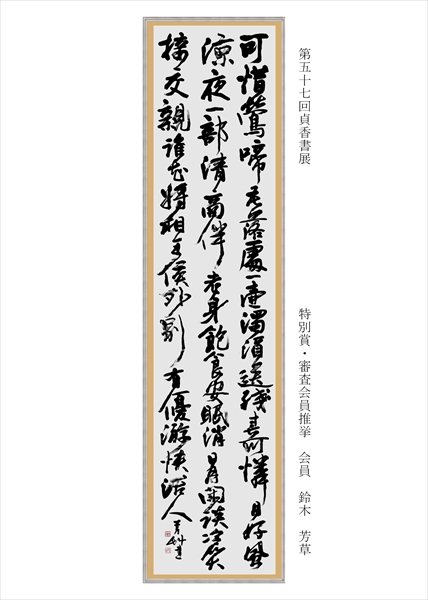 第五十七回貞香書展
特別賞・審査会員推挙　会員　鈴木　芳草
可惜鶯啼花落處一壷濁酒送殘春可憐月好風
涼夜一部清商伴老身飽食安眠消日月閑談冷笑
接交親誰知將相王侯外別有優游快活人
芳艸書